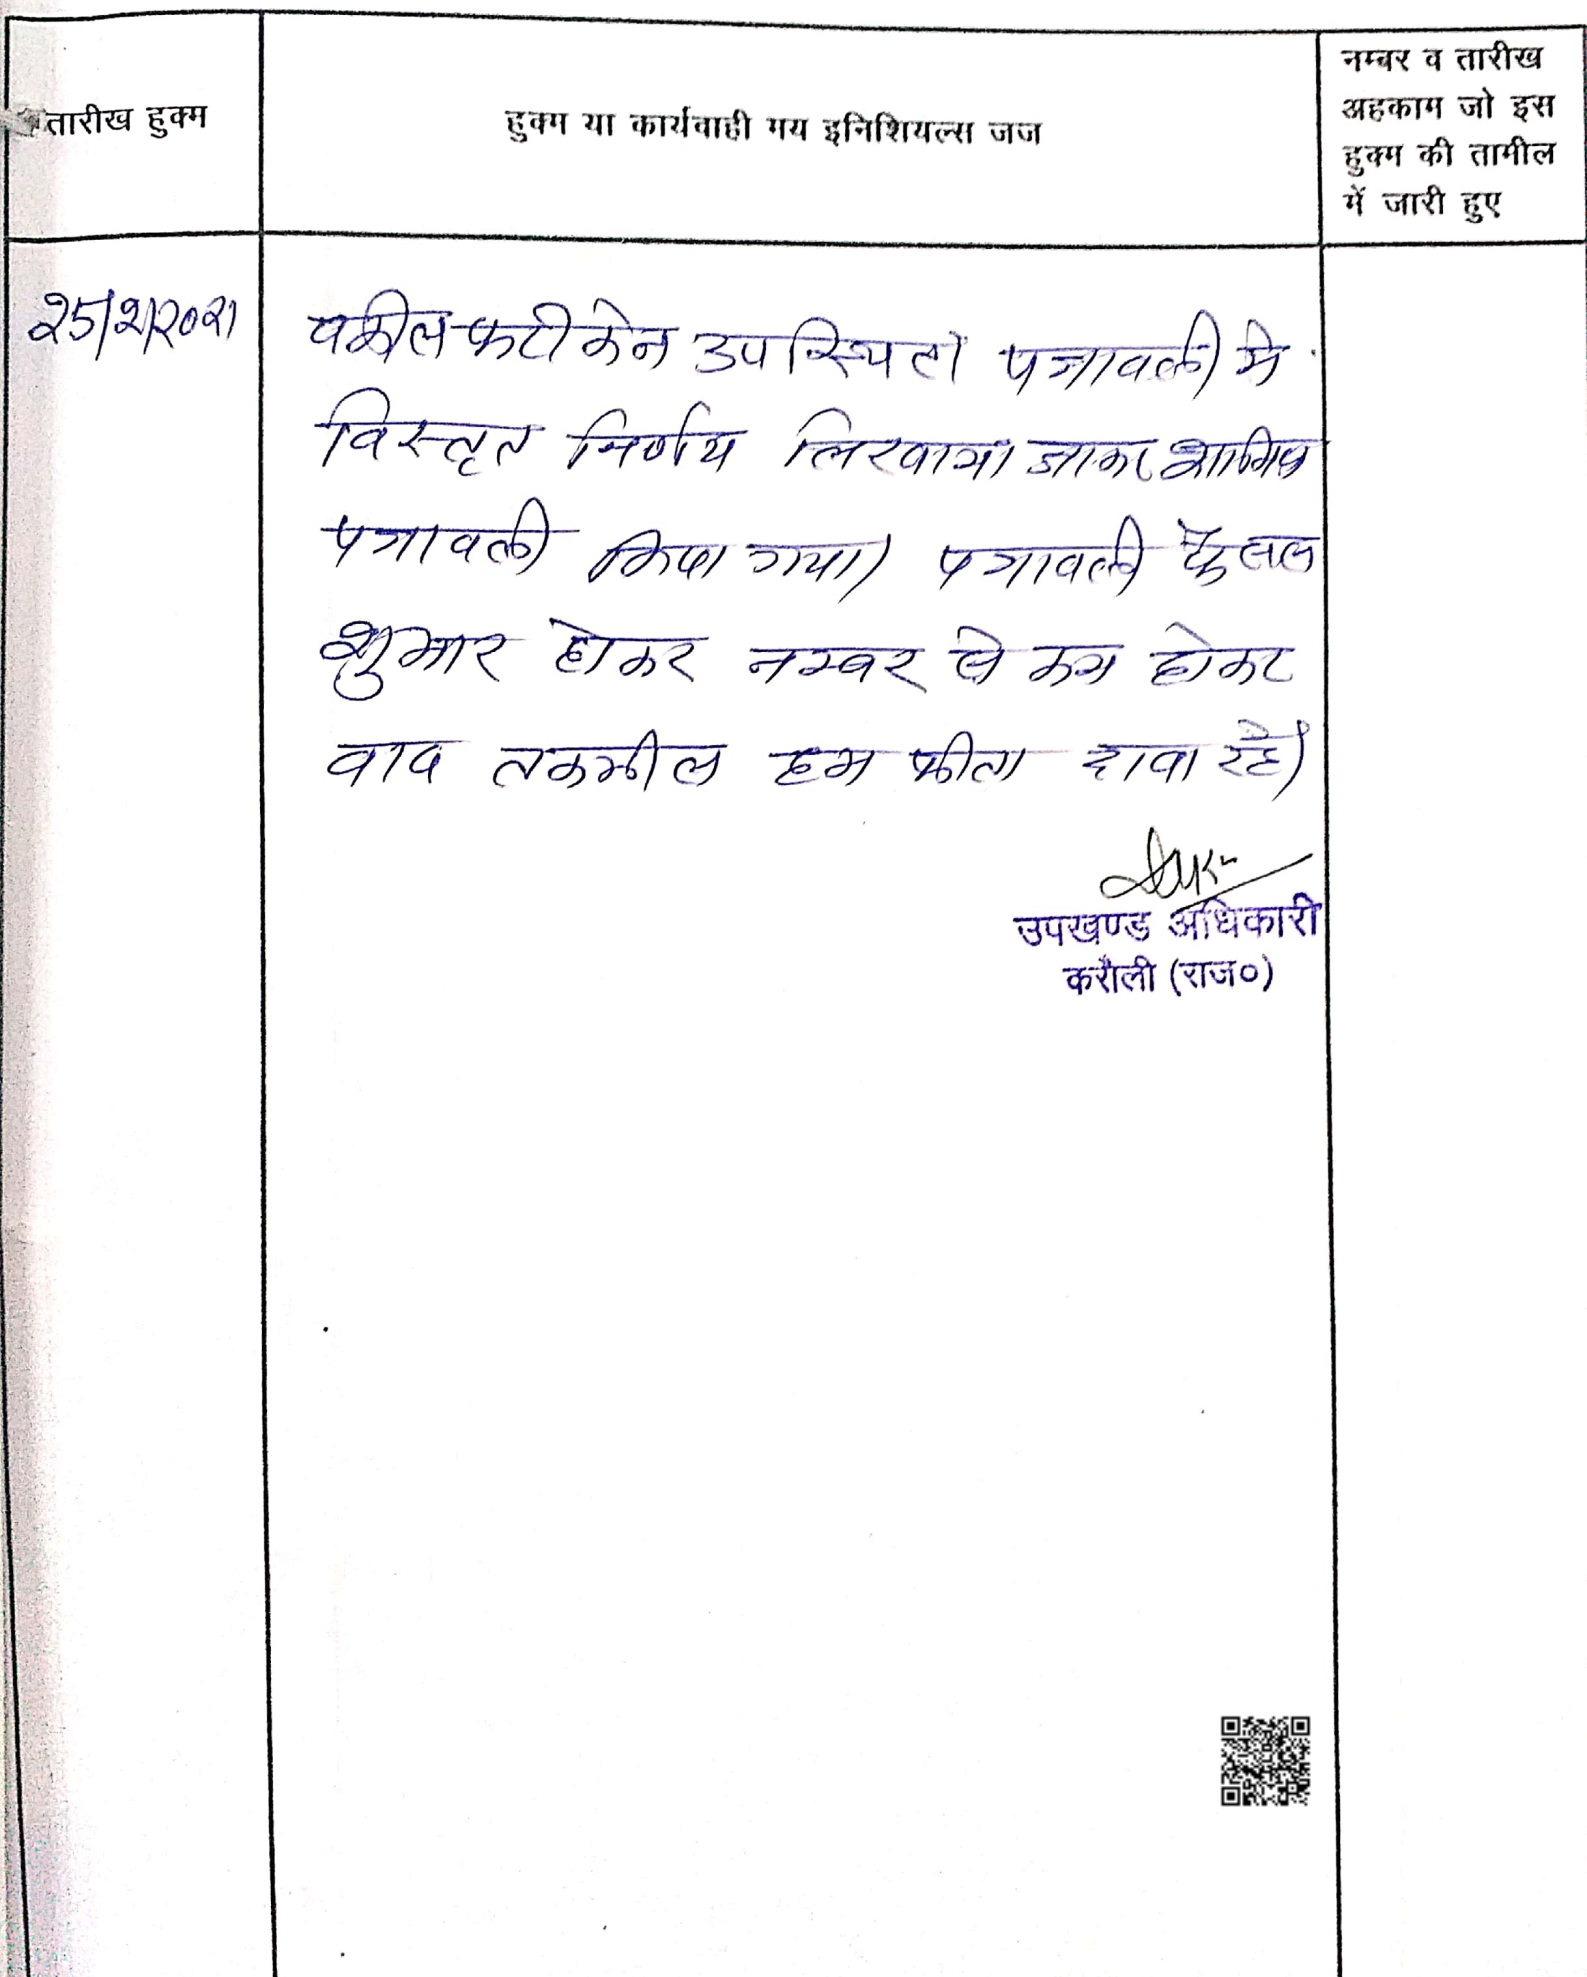 तारीख हुक्म
हुक्म या कार्यवाही मय इनिशियल्स जज
नम्बर व तारीख
अहकाम जो इस
हुक्म की तामील
में जारी हुए
25/2/2021
वकील फरीकेन उपस्थित। पत्रावली मे
विस्तृत निर्णय लिखाया जाकर शामिल
पत्रावली किया गया। पत्रावली फैसल
शुमार होकर नम्बर से कम होकर
वाद तकमील हम फीता दावा रहे।
उपखण्ड अधिकारी
करौली (राज०)